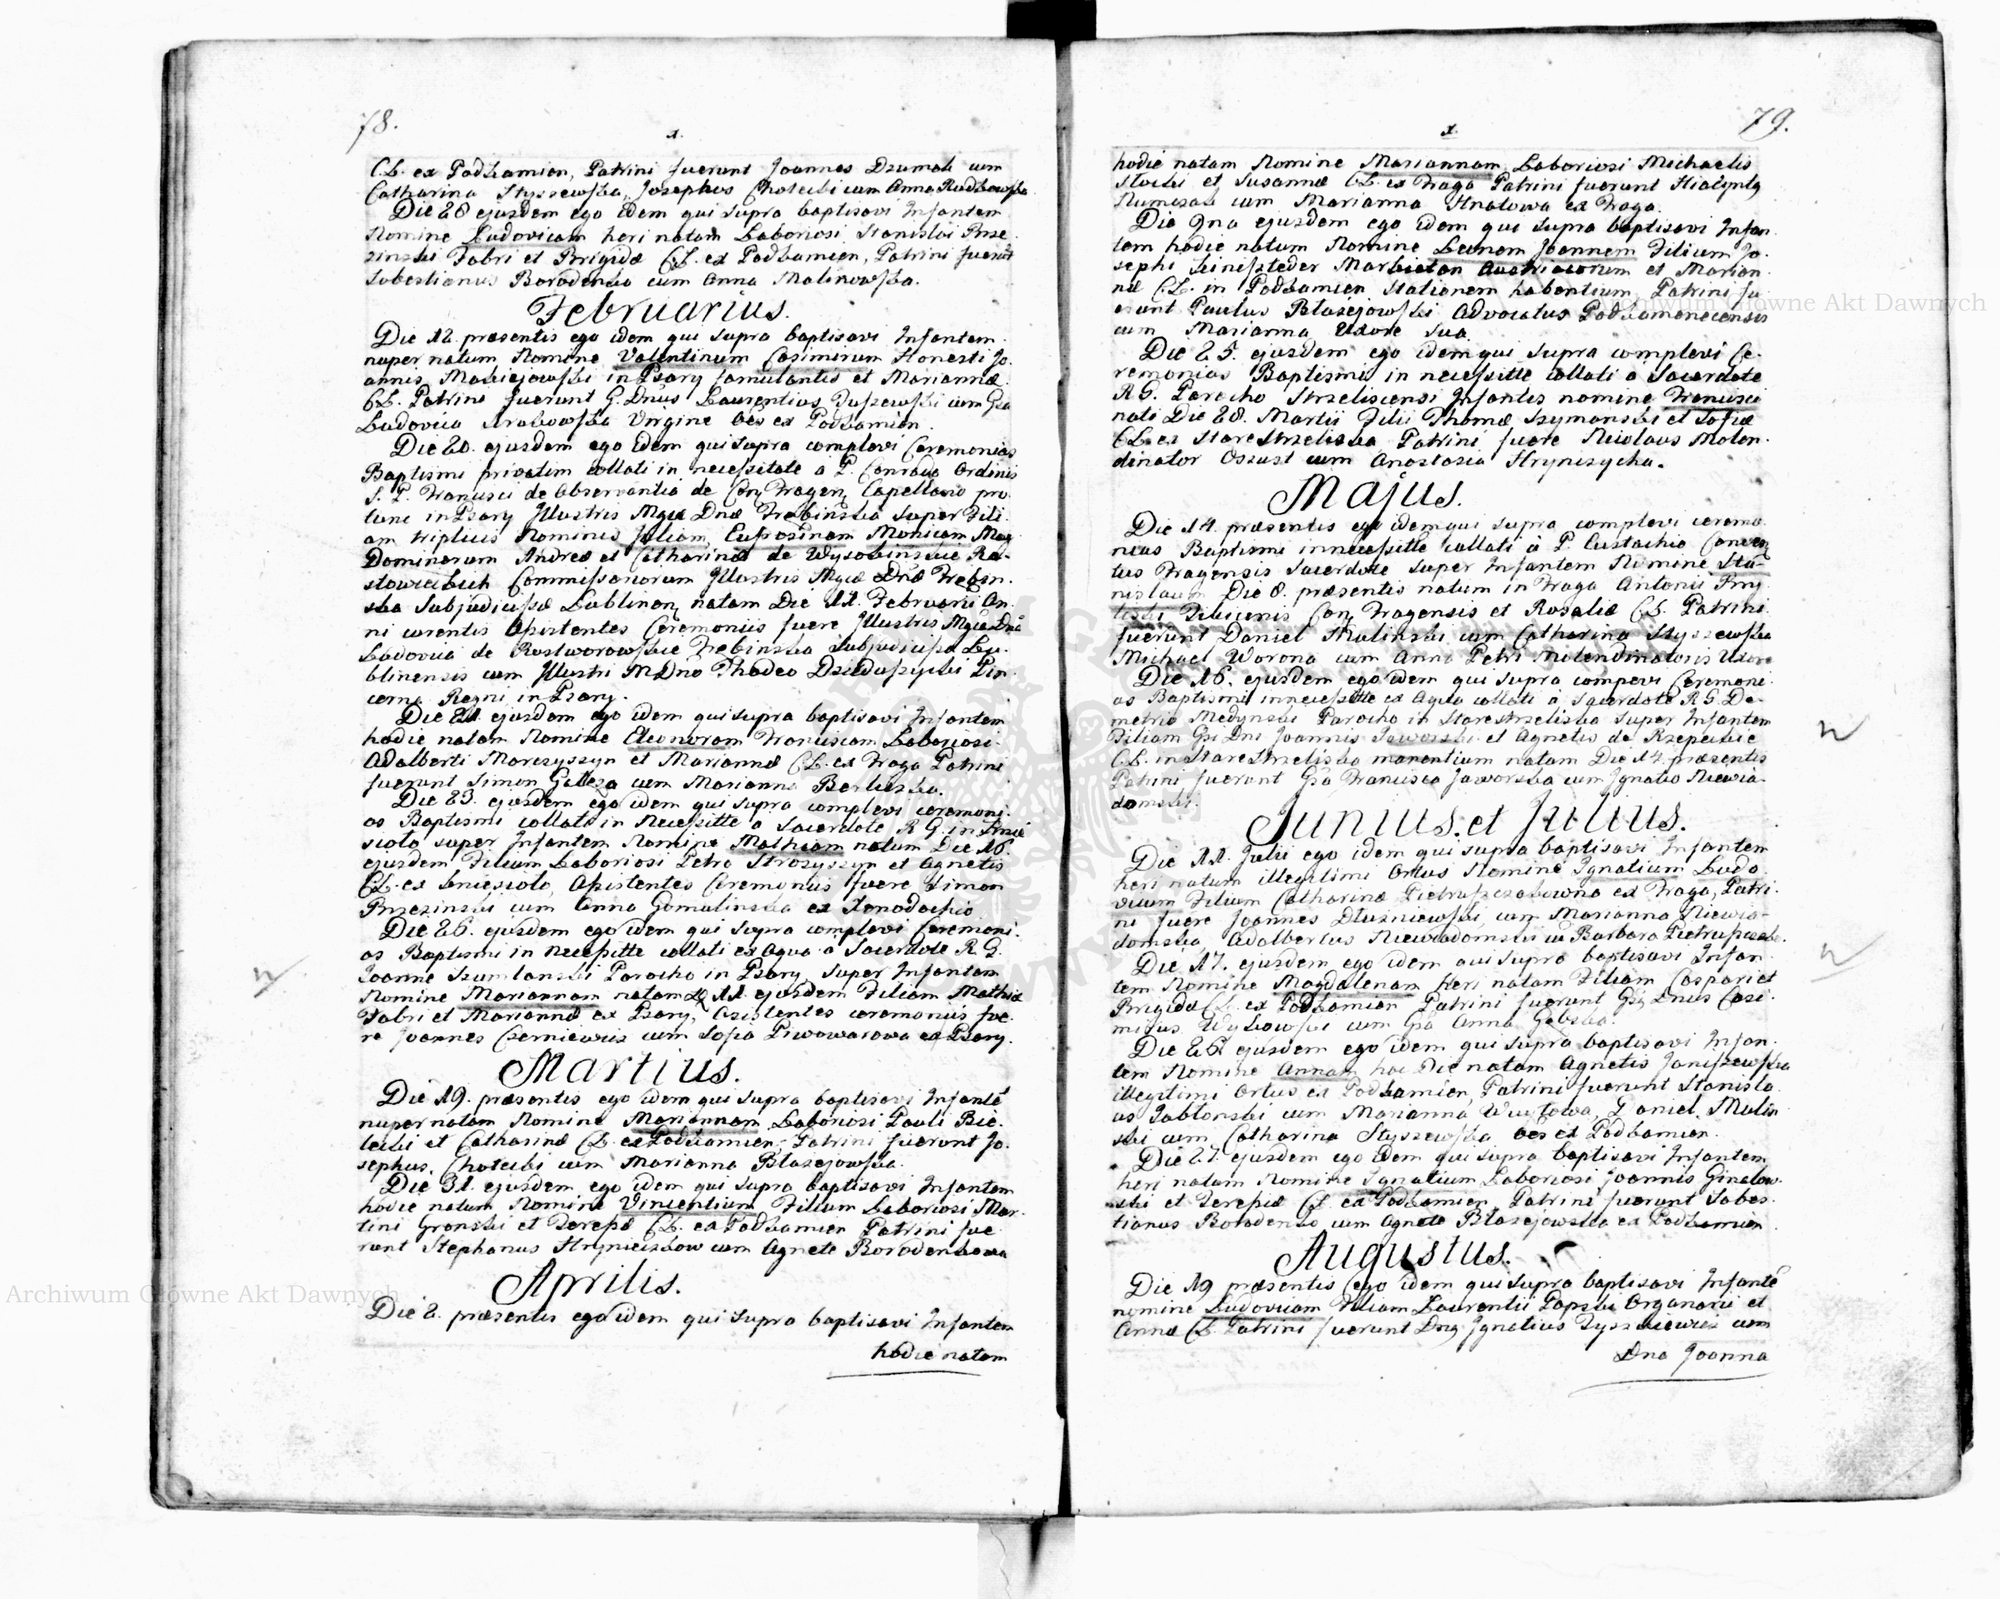 78.
x.
C.L. ex Podkamien, Patrini fuerunt Joannes Dzumak cum
Catharina Styszewska, Josephus Choteibi cum Anna Rudkowska
Die 28 ejusdem ego idem qui supra baptisavi Infantem
Nomine Ludovicam heri natam Laboriosi Stanislai Brze-
zinski Fabri et Brigidæ C.L. ex Podkamien, Patrini fuerunt
Sobestianus Borodenko cum Anna Malinowska.
Februarius.
Die 12. præsentis ego idem qui supra baptisavi Infantem
nuper natum Nomine Valentinum Casimirum Honesti Jo-
annis Maciejowski in Psary famulantis et Mariannæ
C.L. Patrini fuerunt G. Dnus Laurentius Juszewski cum Gsa
Ludovica Arabowska Virgine oes ex Podkamien.
Die 20. ejusdem ego idem qui supra complevi Ceremonias
Baptismi privatim collati in necessitate a P. Conrado Ordinis
S. P. Francisci de Observantia de Conv. Fragen. Capellano pro
tunc in Psary Illustris Mgcæ Dnæ Trebinska super Fili-
am triplicis Nominis Juliam, Eufrosinam Monicam Mag.
Dominorum Andreæ et Catharinæ de Wysobinskie Ra-
stawieckich Commissariorum Illustris Mgcæ Dnæ Trebin-
ska Subjudicissæ Lublinen. natam Die 11. Februarii An-
ni currentis Assistentes Ceremoniis fuere Illustris Mgca Dna
Ludovica de Rostworowskie Trebinska Subjudicissa Lu-
blinensis cum Illustri M. Dno Thadeo Dzieduszycki Pin-
cerna Regni in Psary.
Die 21. ejusdem ego idem qui supra baptisavi Infantem
hodie natam Nomine Eleonoram Franciscam Laboriosi
Adalberti Marczyszyn et Mariannæ C.L. ex Fraga Patrini
fuerunt Simon Galleza cum Marianna Berlicska.
Die 23. ejusdem ego idem qui supra complevi ceremoni-
as Baptismi collati in Necessitte a Sacerdote R. G. in Knie
siolo super Infantem Nomine Mathiam natum Die 16.
ejusdem Filium Laboriosi Petro Strozyszyn et Agnetis
C.L. ex Kniesiolo, Assistentes Ceremoniis fuere Simon
Brzezinski cum Anna Gomulinska ex Xenodochio
Die 26. ejusdem ego idem qui supra complevi Ceremoni-
as Baptismi in Necessitte collati ex Aqua a Sacerdote R. G.
Joanne Szumlanski Parocho in Psary super Infantem
Nomine Mariannam natam D. 11. ejusdem Filiam Mathiæ
Fabri et Mariannæ ex Psary, Assistentes ceremoniis fue-
re Joannes Czerniewicz cum Sofia Piwowarowa ex Psary.
Martius.
Die 19. præsentis ego idem qui supra baptisavi Infantē
nuper natam Nomine Mariannam Laboriosi Pauli Bie-
lecki et Catharinæ C.L. ex Podkamien, Patrini fuerunt Jo-
sephus Choteibi cum Marianna Błazejowska.
Die 31. ejusdem ego idem qui supra baptisavi Infantem
hodie natum Nomine Vincentium Filium Laboriosi Mar-
tini Gronski et Teresæ C.L. ex Podkamien Patrini fue-
runt Stephanus Hryniczkow cum Agnete Borodenkowa
Aprilis.
Die 2. præsentis ego idem qui supra baptisavi Infantem
hodie natam
79.
x.
hodie natam Nomine Mariannam Laboriosi Michaelis
et Susannæ C.L. ex Fraga Patrini fuerunt
cum Marianna Hnatowa ex Fraga.
Die 9na ejusdem ego idem qui supra baptisavi Infan-
tem hodie natum Nomine Leonem Joannem Filium Jo-
sephi Markietan Austriacorum et Marian-
næ C.L. in Podkamien stationem habentium Patrini fu-
erunt Paulus Błazejowski Advocatus Podkamenecensis
cum Marianna Uxore sua
Die 25. ejusdem ego idem qui supra complevi Ce-
remonias Baptismi in necessitte collati a Sacerdote
R. G. Parocho Strzeliscensi Infantis nomine Francisci
nati Die 28. Martii Filii Thomæ Szymanski et Sofiæ
C.L. ex Stare Strzeliska Patrini fuere Nicolaus Molen-
dinator Oszust cum Anastasia Hryniszycha.
Majus.
Die 14. præsentis ego idem qui supra complevi ceremo-
nias Baptismi in necessitte collati à P. Eustachio Conven
tus Fragensis Sacerdote super Infantem Nomine Sta-
nislaum Die 8. præsentis natum in Fraga Antonii Pry-
Tibicinis Conv. Fragensis et Rosaliæ C.L. Patrini
fuerunt Daniel Mulinski cum Catharina Styszewska
Michael Worona cum Anna Petri Molendinatoris Uxore
Die 16. ejusdem ego idem qui supra compevi Ceremoni-
as Baptismi in necessitte ex Aqua collati à Sacerdote R. G. De-
metrio Medynski Parocho in Stare Strzeliska super Infantem
Filiam Gsi Dni Joannis Jaworski et Agnetis de Rzepeckie
C.L. in Stare Strzeliska manentium natam Die 14. præsentis
Patrini fuerunt Gsa Francisca Jaworska cum Ignatio Niewia-
domski.
Junius. et Julius.
Die 11. Julii ego idem qui supra baptisavi Infantem
heri natum illegitimi Ortus Nomine Ignatium Ludo-
vicum Filium Catharinæ Pietruszczakowna ex Fraga, Patri-
ni fuere Joannes Dłuzniewski cum Marianna Niewia-
domska, Adalbertus Niewiadomski cū Barbara
Die 17. ejusdem ego idem qui supra baptisavi Infan-
tem Nomine Magdalenam heri natam Filiam Caspari et
Brigidæ C.L. ex Podkamien Patrini fuerunt Gsg Dnus Casi-
mirus cum Gsa Anna Gebska.
Die 26 ejusdem ego idem qui supra baptisavi Infan-
tem Nomine Annam hac Die natam Agnetis Janiszewska
illegitimi Ortus ex Podkamien, Patrini fuerunt Stanisla-
us Jablonski cum Marianna Daniel Mulin
ski cum Catharina Styszewska oes ex Podkamien.
Die 27. ejusdem ego idem qui supra baptisavi Infantem
heri natam Nomine Ignatium Laboriosi Joannis Ginalow-
ski et Teresiæ C.L. ex Podkamien, Patrini fuerunt Sobes-
tianus Borodenko cum Agnete Błazejowska ex Podkamien
Augustus.
Die 19 præsentis ego idem qui supra baptisavi Infantē
nomine Ludovicam Filiam Laurentii Papski Organarii et
Annæ C.L. Patrini fuerunt Dng Ignatius Tyszkiewicz cum
Dna Joanna
Archiwum Główne Akt Dawnych
Archiwum Główne Akt Dawnych